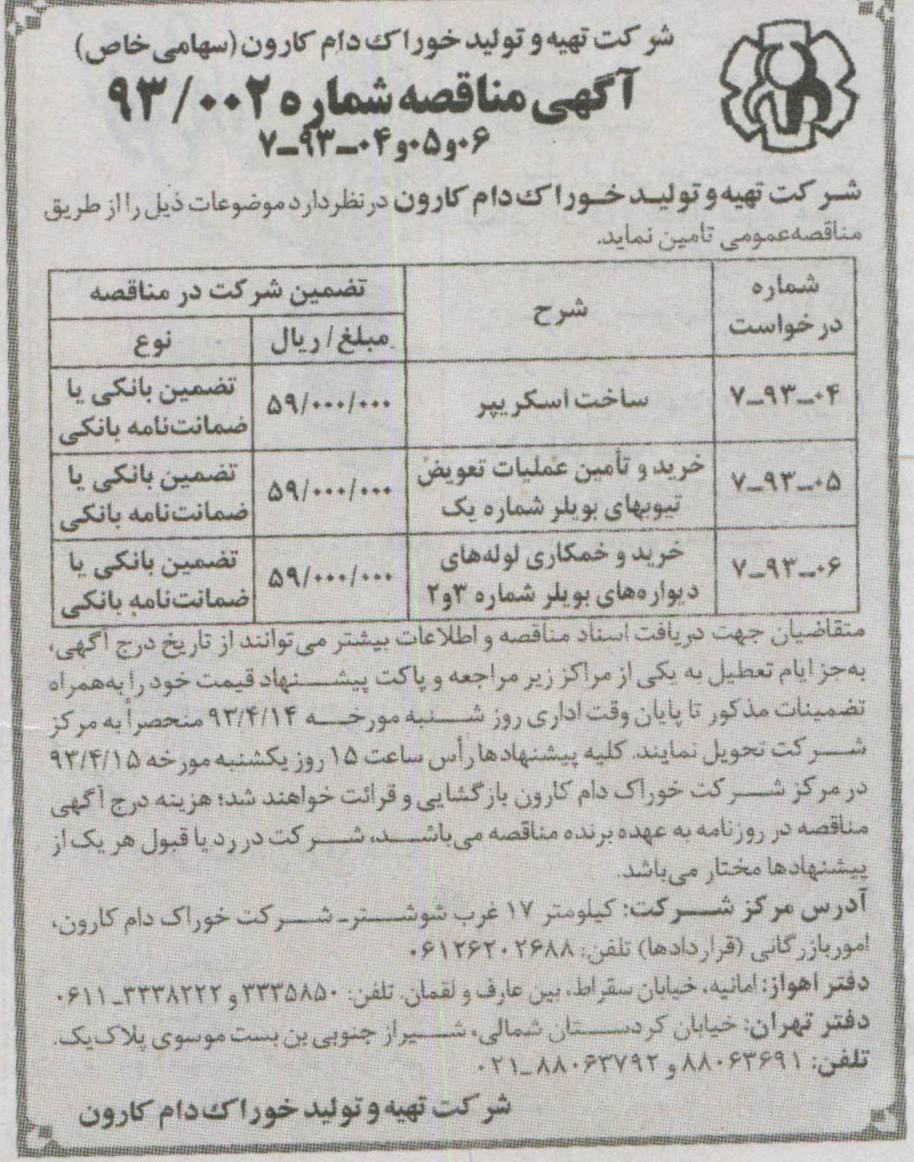 شرکت تهیه و تولید خوراک دام کارون (سهامی خاص)
آگهی مناقصه شماره ۹۳/۰۰۲
۷_۹۳_۰۴و۰۵و۰۶
شرکت تهیه و تولید خوراک دام کارون در نظر دارد موضوعات ذیل را از طریق
مناقصه عمومی تامین نماید.
شماره درخواست | شرح | تضمین شرکت در مناقصه
مبلغ/ریال | نوع
۷_۹۳_۰۴ | ساخت اسکریپر | ۵۹/۰۰۰/۰۰۰ | تضمین بانکی یا ضمانت‌نامه بانکی
۷_۹۳_۰۵ | خرید و تأمین عملیات تعویض تیوبهای بویلر شماره یک | ۵۹/۰۰۰/۰۰۰ | تضمین بانکی یا ضمانت‌نامه بانکی
۷_۹۳_۰۶ | خرید و خمکاری لوله‌های دیواره‌های بویلر شماره ۲و۳ | ۵۹/۰۰۰/۰۰۰ | تضمین بانکی یا ضمانت‌نامه بانکی
متقاضیان جهت دریافت اسناد مناقصه و اطلاعات بیشتر می‌توانند از تاریخ درج آگهی،
به‌جز ایام تعطیل به یکی از مراکز زیر مراجعه و پاکت پیشنهاد قیمت خود را به‌همراه
تضمینات مذکور تا پایان وقت اداری روز شنبه مورخه ۹۳/۴/۱۴ منحصراً به مرکز
شرکت تحویل نمایند. کلیه پیشنهادها رأس ساعت ۱۵ روز یکشنبه مورخه ۹۳/۴/۱۵
در مرکز شرکت خوراک دام کارون بازگشایی و قرائت خواهند شد؛ هزینه درج آگهی
مناقصه در روزنامه به عهده برنده مناقصه می‌باشد، شرکت در رد یا قبول هر یک از
پیشنهادها مختار می‌باشد.
آدرس مرکز شرکت: کیلومتر ۱۷ غرب شوشتر_ شرکت خوراک دام کارون،
امور بازرگانی (قراردادها) تلفن: ۰۶۱۲۶۲۰۲۶۸۸
دفتر اهواز: امانیه، خیابان سقراط، بین عارف و لقمان. تلفن: ۳۳۳۵۸۵۰ و ۳۳۳۸۲۲۲_۰۶۱۱
دفتر تهران: خیابان کردستان شمالی، شیراز جنوبی بن بست موسوی پلاک یک.
تلفن: ۸۸۰۶۳۶۹۱ و ۸۸۰۶۳۷۹۲_۰۲۱
شرکت تهیه و تولید خوراک دام کارون